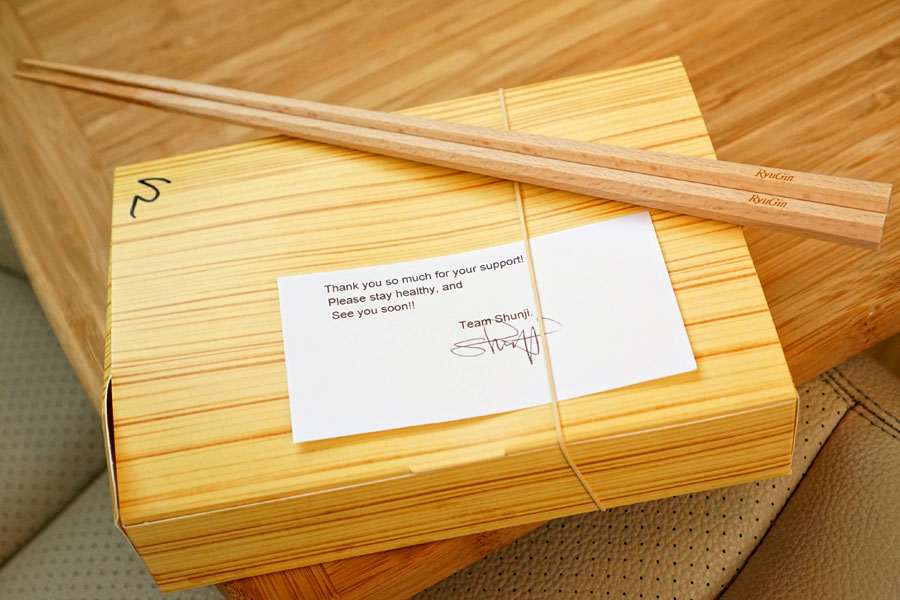 RyuGin
RyuGin
Thank you so much for your support!
Please stay healthy, and
See you soon!!
Team Shunji.